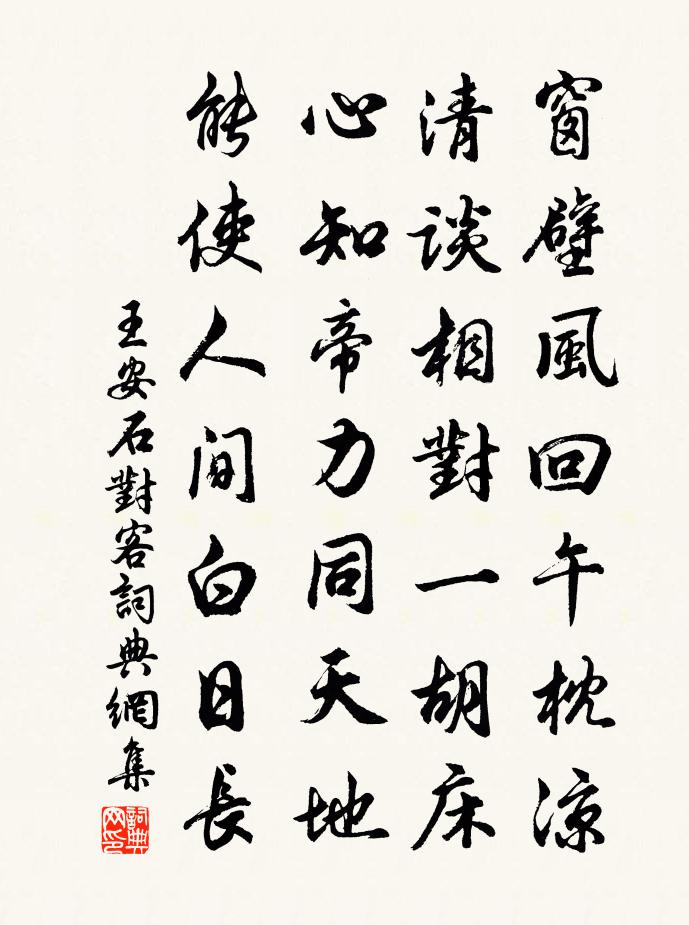 窗壁風回午枕涼
清談相對一胡床
心知帝力同天地
能使人間白日長
王安石對客詞典網集
詞典
网印